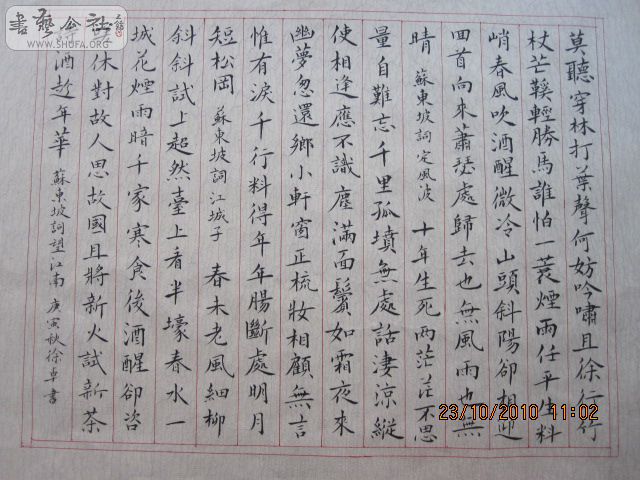 書藝公社
WWW.SHUFA.ORG
莫聽穿林打葉聲何妨吟嘯且徐行竹
杖芒鞵輕勝馬誰怕一蓑煙雨任平生料
峭春風吹酒醒微冷山頭斜陽卻相迎
回首向來蕭瑟處歸去也無風雨也無
晴 蘇東坡詞定風波 十年生死兩茫茫不思
量自難忘千里孤墳無處話淒涼縱
使相逢應不識塵滿面鬢如霜夜來
幽夢忽還鄉小軒窗正梳妝相顧無言
惟有淚千行料得年年腸斷處明月
短松岡 蘇東坡詞江城子 春未老風細柳
斜斜試上超然臺上看半壕春水一
城花煙雨暗千家寒食後酒醒卻咨
嗟休對故人思故國且將新火試新茶
詩酒趁年華 蘇東坡詞望江南 庚寅秋徐卓書
23/10/2010 11:02